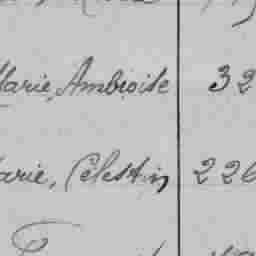 Marie, Ambroise 32
Marie, Célestin 226